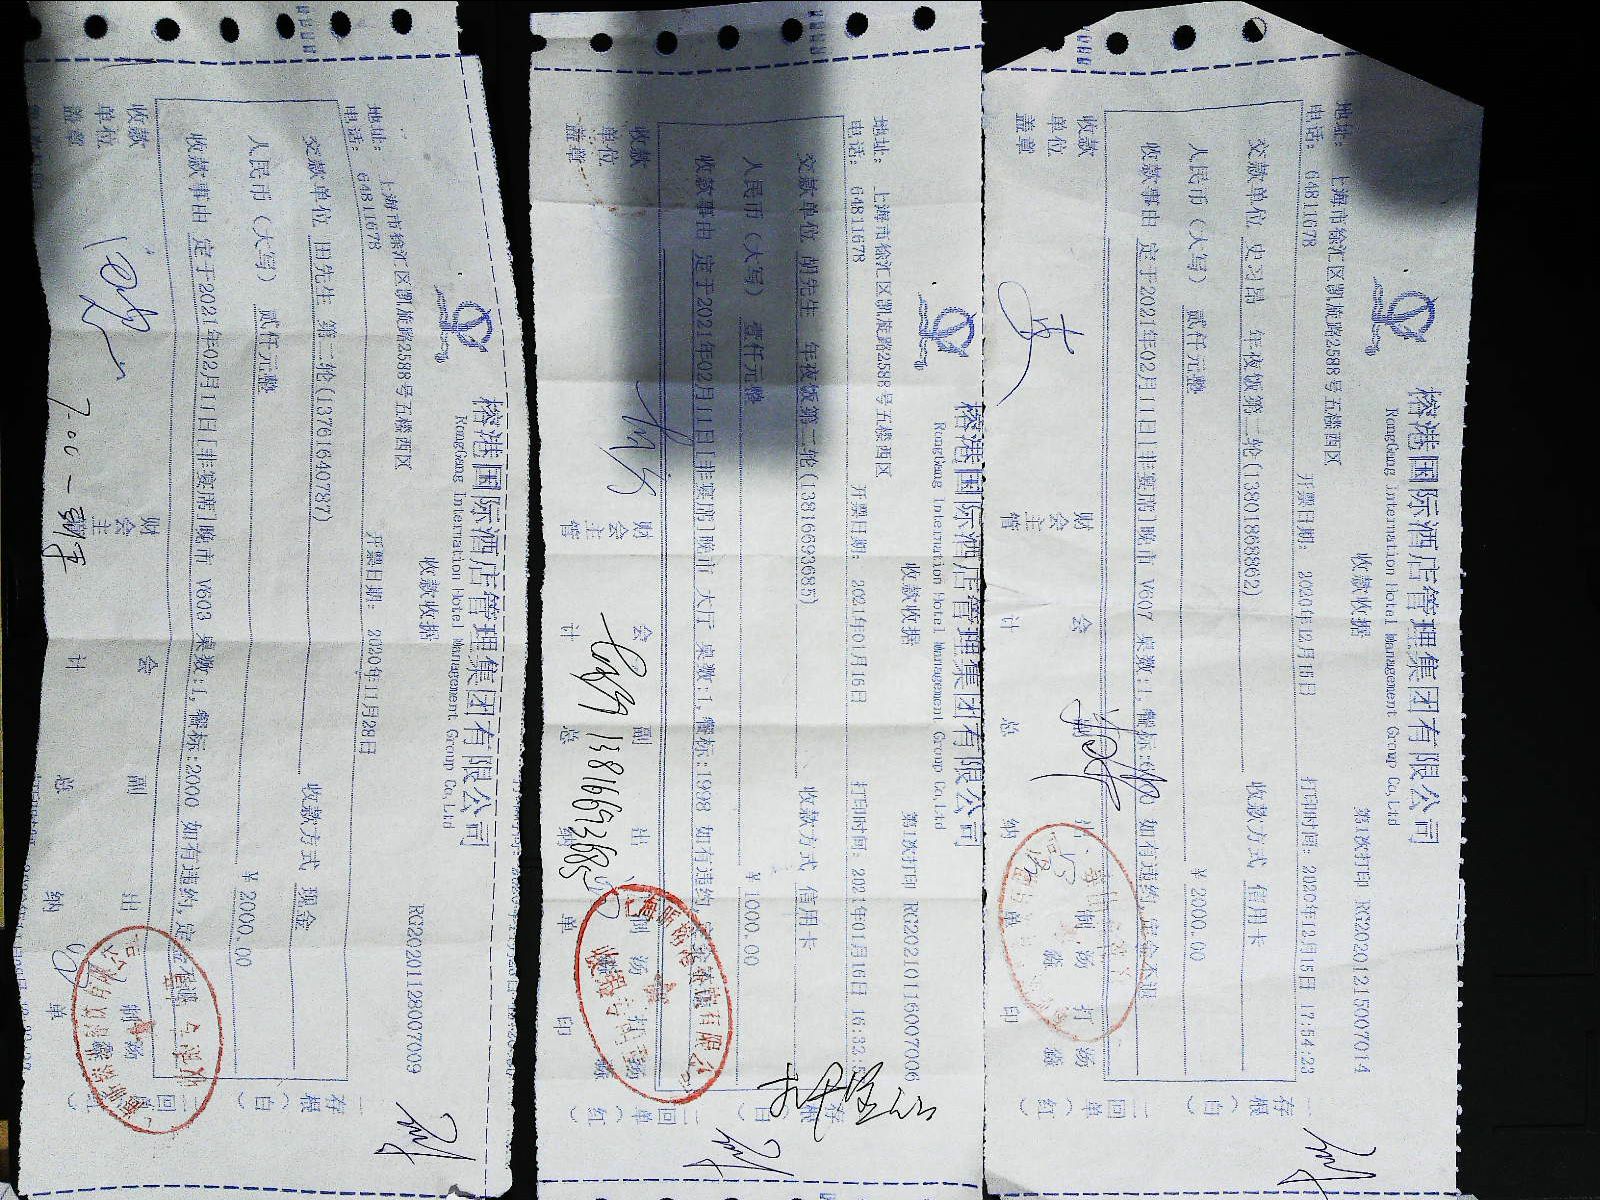 榕港国际酒店管理集团有限公司
RongGang Internation Hotel Management Group Co,Ltd
收款收据
第1次打印 RC20201215007014
地址： 上海市徐汇区凯旋路2588号五楼西区
电话： 64811678
开票日期： 2020年12月15日
打印时间：2020年12月15日 17:54:23
交款单位 史习昂 年夜饭第二轮(13801868862)
收款方式 信用卡
人民币（大写） 贰仟元整
￥2000.00
收款事由 定于2021年02月11日[非宴席]晚市 V607 桌数:1, 如有违约,定金不退
收款单位盖章
财会主管
会计
副总
出纳
制单
打印
一存根（白）
二回单（红）
榕港国际酒店管理集团有限公司
RongGang Internation Hotel Management Group Co,Ltd
收款收据
第1次打印 RC20210116007006
地址： 上海市徐汇区凯旋路2588号五楼西区
电话： 64811678
开票日期： 2021年01月16日
打印时间：2021年01月16日 16:32:5
交款单位 胡先生 年夜饭第二轮(13816693685)
收款方式 信用卡
人民币（大写） 壹仟元整
￥1000.00
收款事由 定于2021年02月11日[非宴席]晚市 大厅 桌数:1, 餐标:1998 如有违约,
收款单位盖章
财会主管
会计
副总
出纳
制单
打印
13816693685
存根（白）
二回单（红）
榕港国际酒店管理集团有限公司
RongGang Internation Hotel Management Group Co,Ltd
收款收据
RC20201128007009
地址： 上海市徐汇区凯旋路2588号五楼西区
电话： 64811678
开票日期： 2020年11月28日
交款单位 田先生 第二轮(13761640787)
收款方式 现金
人民币（大写） 贰仟元整
￥2000.00
收款事由 定于2021年02月11日[非宴席]晚市 V603 桌数:1, 餐标:2000 如有违约,定金
收款单位盖章
财会主
会计
副总
出纳
制单
存根（白）
二回